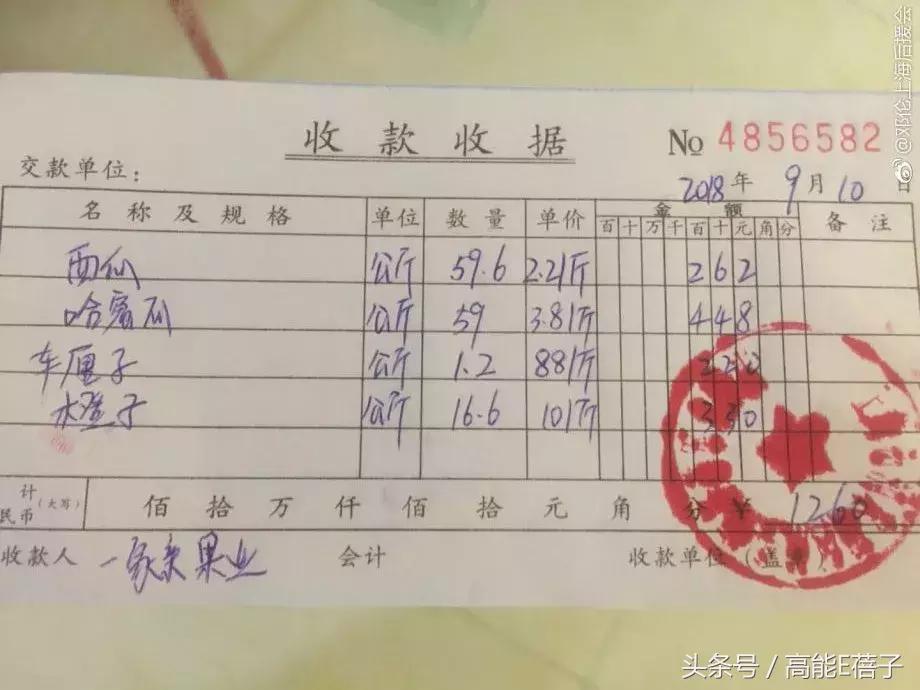 @邓伦上海后援会
收款收据 No 4856582
交款单位： 2018年9月10日
名称及规格 单位 数量 单价 金额 备注
百十万千百十元角分
西仙 公斤 59.6 2.2/斤 262
哈蜜瓜 公斤 59 3.8/斤 448
车厘子 公斤 1.2 88/斤 220
水橙子 公斤 16.6 10/斤 330
计
民币（大写） 佰拾万仟佰拾元角分￥ 1260
收款人 一家亲果业 会计 收款单位（盖章）
头条号 / 高能E蓓子